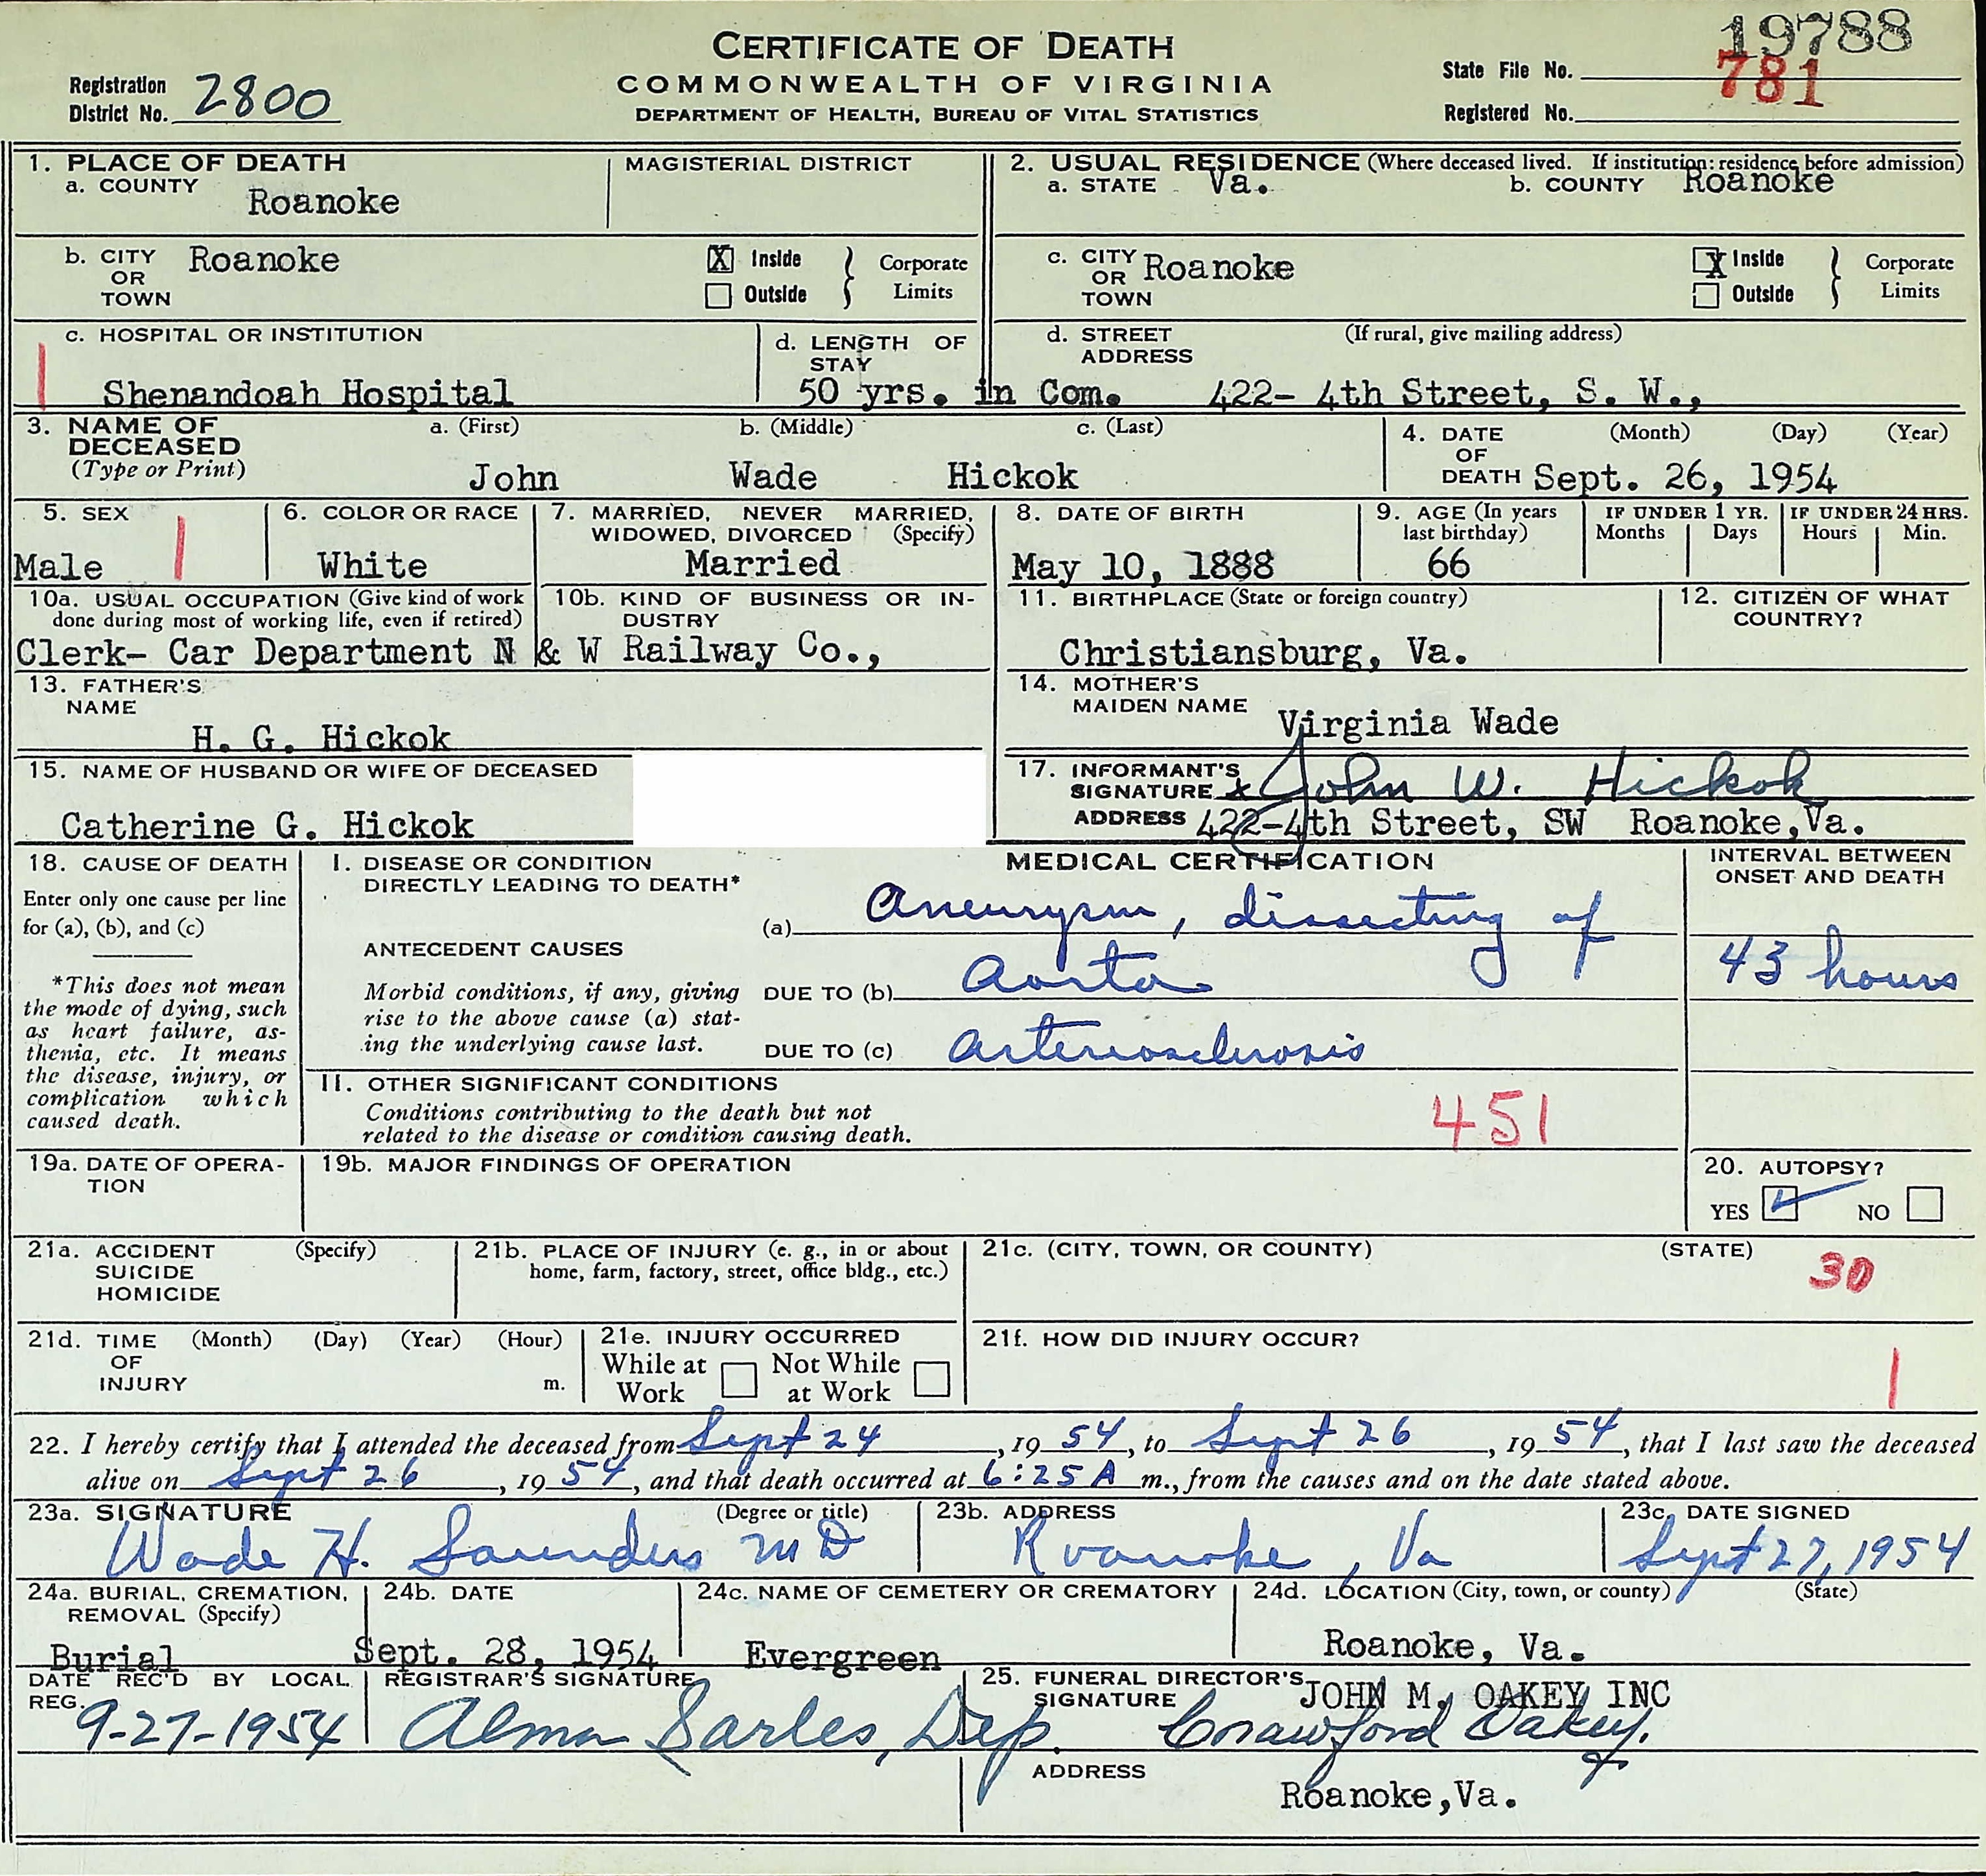 19788
CERTIFICATE OF DEATH
COMMONWEALTH OF VIRGINIA
DEPARTMENT OF HEALTH, BUREAU OF VITAL STATISTICS
Registration District No. 2800
State File No.
781
Registered No.
1. PLACE OF DEATH
a. COUNTY Roanoke
MAGISTERIAL DISTRICT
2. USUAL RESIDENCE (Where deceased lived. If institution: residence before admission)
a. STATE Va. b. COUNTY Roanoke
b. CITY OR TOWN Roanoke
X Inside
Outside
Corporate Limits
c. CITY OR TOWN Roanoke
X Inside
Outside
Corporate Limits
c. HOSPITAL OR INSTITUTION
Shenandoah Hospital
1
d. LENGTH OF STAY
50 yrs. in Com.
d. STREET ADDRESS (If rural, give mailing address)
422- 4th Street, S. W.,
3. NAME OF DECEASED (Type or Print)
a. (First) b. (Middle) c. (Last)
John Wade Hickok
4. DATE OF DEATH (Month) (Day) (Year)
Sept. 26, 1954
5. SEX
Male 1
6. COLOR OR RACE
White
7. MARRIED, NEVER MARRIED, WIDOWED, DIVORCED (Specify)
Married
8. DATE OF BIRTH
May 10, 1888
9. AGE (In years last birthday)
66
IF UNDER 1 YR.
Months Days
IF UNDER 24 HRS.
Hours Min.
10a. USUAL OCCUPATION (Give kind of work done during most of working life, even if retired)
10b. KIND OF BUSINESS OR INDUSTRY
Clerk- Car Department N & W Railway Co.,
11. BIRTHPLACE (State or foreign country)
Christiansburg, Va.
12. CITIZEN OF WHAT COUNTRY?
13. FATHER'S NAME
H. G. Hickok
14. MOTHER'S MAIDEN NAME
Virginia Wade
15. NAME OF HUSBAND OR WIFE OF DECEASED
Catherine G. Hickok
17. INFORMANT'S SIGNATURE x John W. Hickok
ADDRESS 422-4th Street, SW Roanoke,Va.
18. CAUSE OF DEATH
Enter only one cause per line
for (a), (b), and (c)
*This does not mean
the mode of dying, such
as heart failure, as-
thenia, etc. It means
the disease, injury, or
complication which
caused death.
MEDICAL CERTIFICATION
I. DISEASE OR CONDITION
DIRECTLY LEADING TO DEATH*
(a) Aneurysm, dissecting of
ANTECEDENT CAUSES
Morbid conditions, if any, giving
rise to the above cause (a) stat-
ing the underlying cause last.
DUE TO (b) Aorta
DUE TO (c) Arteriosclerosis
INTERVAL BETWEEN
ONSET AND DEATH
43 hours
II. OTHER SIGNIFICANT CONDITIONS
Conditions contributing to the death but not
related to the disease or condition causing death.
451
19a. DATE OF OPERA-
TION
19b. MAJOR FINDINGS OF OPERATION
20. AUTOPSY?
YES ✓ NO
21a. ACCIDENT (Specify)
SUICIDE
HOMICIDE
21b. PLACE OF INJURY (e. g., in or about
home, farm, factory, street, office bldg., etc.)
21c. (CITY, TOWN, OR COUNTY) (STATE)
30
21d. TIME (Month) (Day) (Year) (Hour)
OF
INJURY m.
21e. INJURY OCCURRED
While at Work Not While at Work
21f. HOW DID INJURY OCCUR?
1
22. I hereby certify that I attended the deceased from Sept 24, 1954, to Sept 26, 1954, that I last saw the deceased
alive on Sept 26, 1954, and that death occurred at 6:25 A m., from the causes and on the date stated above.
23a. SIGNATURE (Degree or title)
Wade H. Saunders MD
23b. ADDRESS
Roanoke, Va
23c. DATE SIGNED
Sept 27, 1954
24a. BURIAL, CREMATION,
REMOVAL (Specify)
Burial
24b. DATE
Sept. 28, 1954
24c. NAME OF CEMETERY OR CREMATORY
Evergreen
24d. LOCATION (City, town, or county) (State)
Roanoke, Va.
DATE REC'D BY LOCAL REG.
9-27-1954
REGISTRAR'S SIGNATURE
Alma Sarles, Dep.
25. FUNERAL DIRECTOR'S SIGNATURE
JOHN M. OAKEY INC
Crawford Oakey.
ADDRESS
Roanoke,Va.